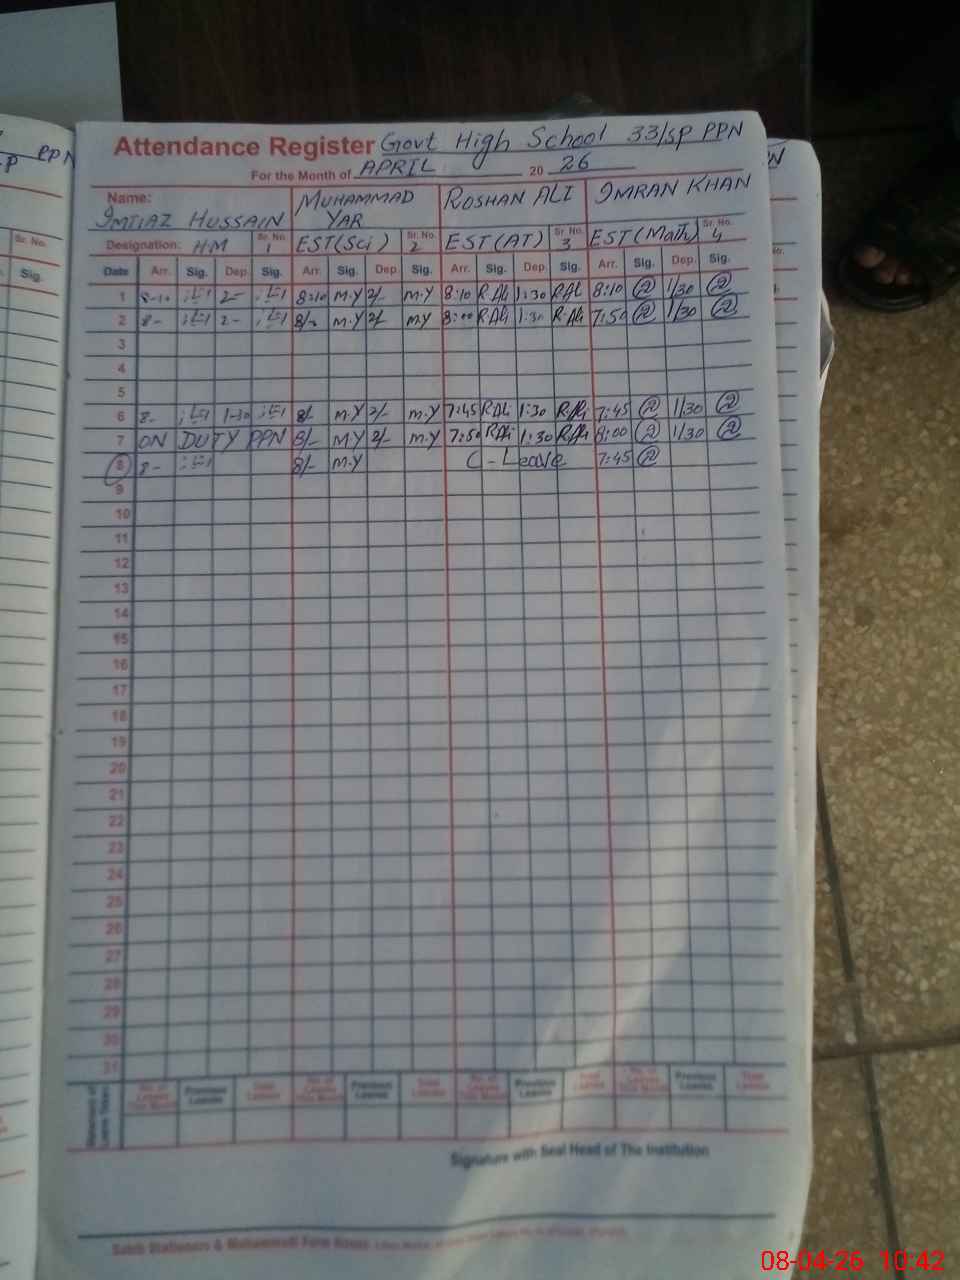 Attendance Register Govt High School 33/SP PPN
For the Month of APRIL 20 26
Name: IMTIAZ HUSSAIN MUHAMMAD YAR ROSHAN ALI IMRAN KHAN
Designation: HM Sr. No. 1 EST(Sci) Sr. No. 2 EST(AT) Sr. No. 3 EST(Math) Sr. No. 4
Date Arr. Sig. Dep. Sig. Arr. Sig. Dep. Sig. Arr. Sig. Dep. Sig. Arr. Sig. Dep. Sig.
1 8-10 2- 8:10 M.Y 2/- M.Y 8:10 R.Ali 1:30 R.Ali 8:10 1/30
2 8- 2- 8/- M.Y 2/- M.Y 8:00 R.Ali 1:30 R.Ali 7:50 1/30
3
4
5
6 8- 1-30 8/- M.Y 2/- M.Y 7:45 R.Ali 1:30 R.Ali 7:45 1/30
7 ON DUTY PPN 8/- MY 2/- M.Y 7:50 R.Ali 1:30 R.Ali 8:00 1/30
8 8- 8/- M.Y C-Leave 7:45
9
10
11
12
13
14
15
16
17
18
19
20
21
22
23
24
25
26
27
28
29
30
31
No. of Leaves This Month Previous Leaves Total Leaves No. of Leaves This Month Previous Leaves Total Leaves No. of Leaves This Month Previous Leaves Total Leaves No. of Leaves This Month Previous Leaves Total Leaves
Signature with Seal Head of The Institution
08-04-26 10:42